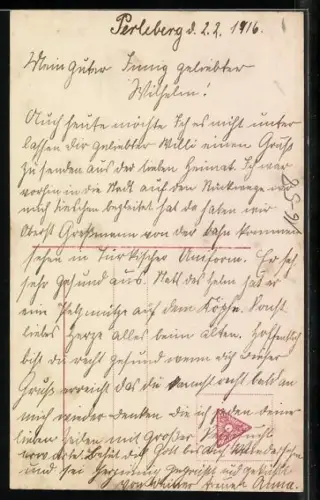 Perleberg d. 2.2. 1916.
Mein guter Innig geliebter
Wilhelm!
Auch heute möchte Ich es nicht unter
lassen dir geliebter Willi einen Gruß
zu senden aus der lieben Heimat. Ich war
vorhin in die Stadt auf den Rückwege
mich begleitet hat da sahen wir
Oberst Großmann von der Bahn kommen
sehen in Türkischer Uniform. Er sah
sehr gesund aus. Statt des Helm hat er
eine Pelzmütze auf dem Kopfe. Sonst
liebes Herze alles beim alten. Hoffentlich
bist du recht gesund wenn dich dieser
Gruß erreicht das du recht bald an
mich wieder denken die ich jeden deiner
lieben mit Großer
Gott bis auf Wiedersehen
und sei Herzinnig Gegrüßt und geküßt
von deiner Anna.